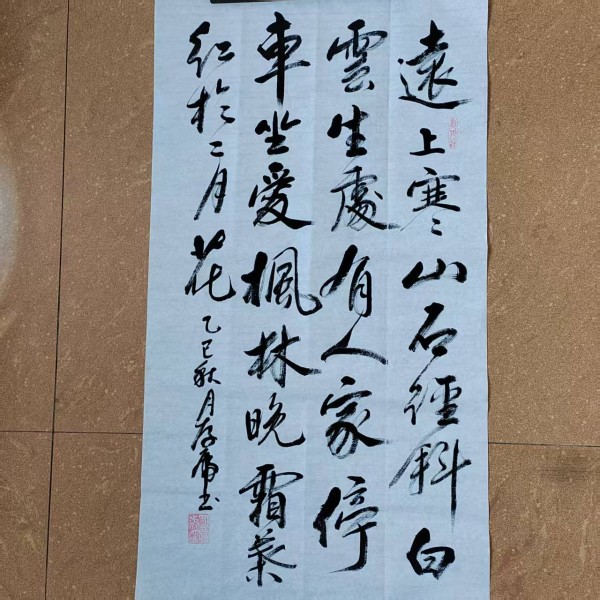 遠上寒山石徑斜白
雲生處有人家停
車坐愛楓林晚霜葉
紅於二月花
乙巳秋月存虎书